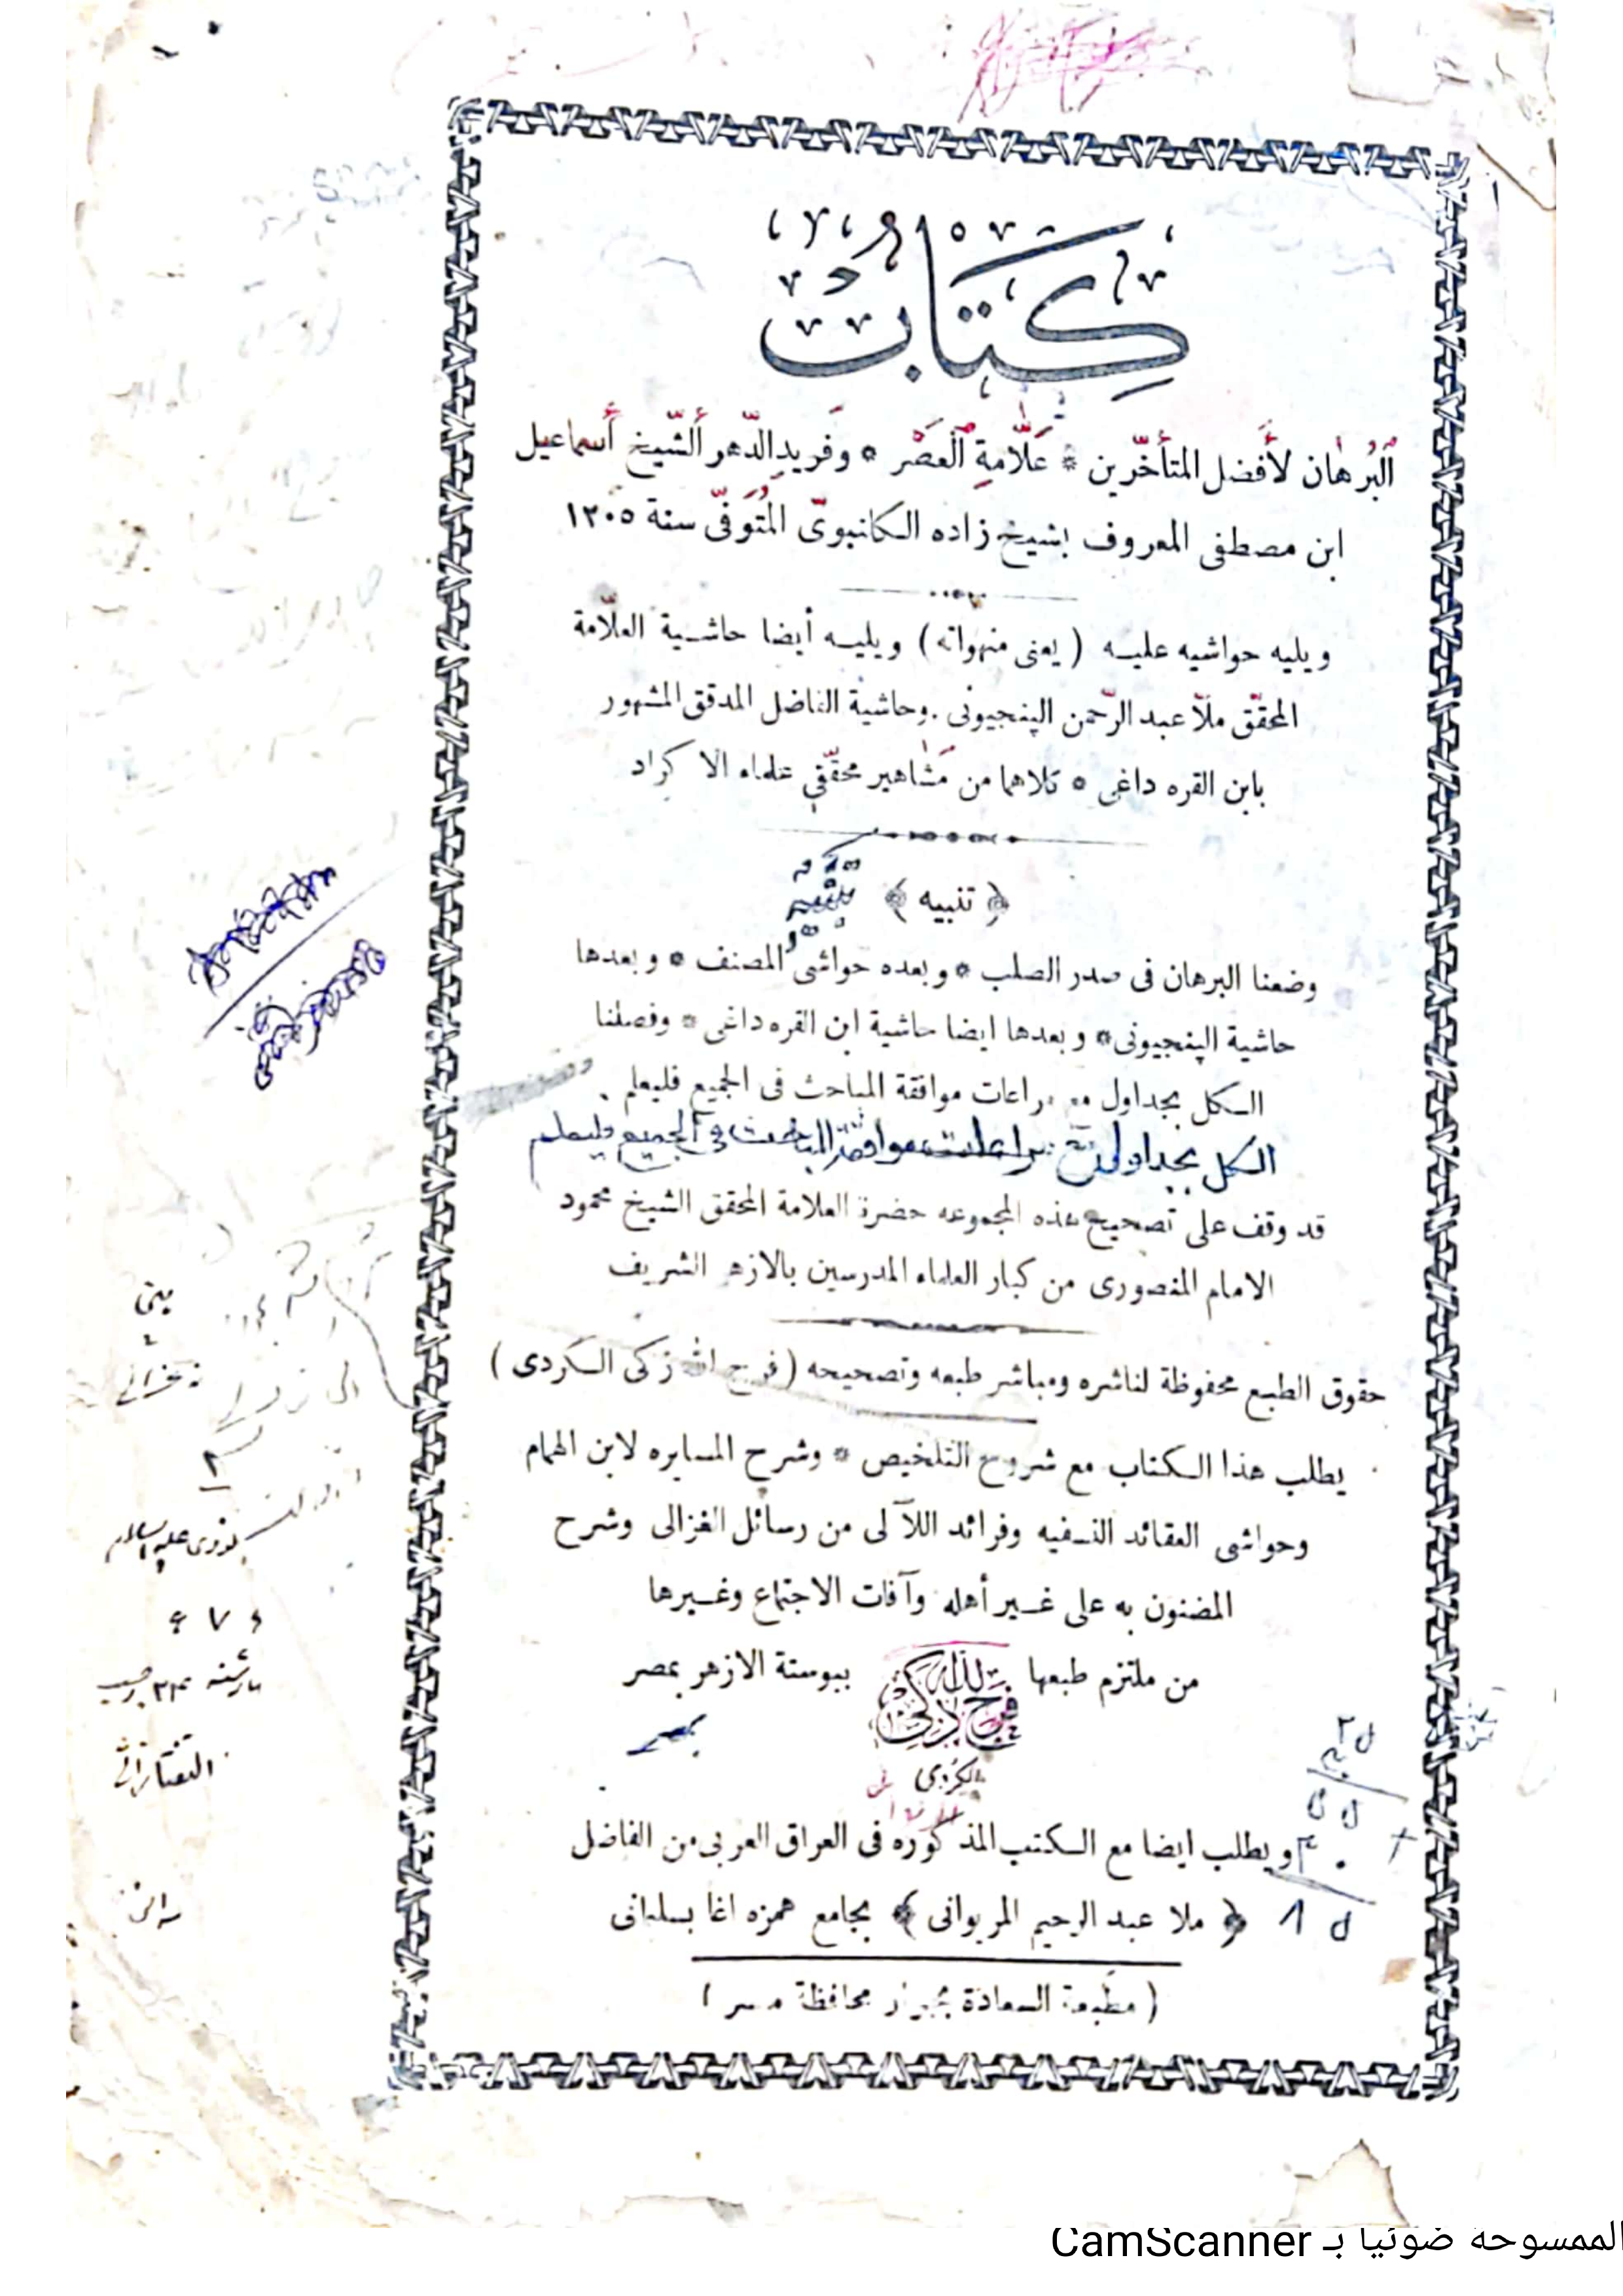 كتاب
البرهان لأفضل المتأخرين * علامة العصر * وفريد الدهر الشيخ أسماعيل
ابن مصطفى المعروف بشيخ زاده الكلنبوى المتوفى سنة ١٢٠٥
ويليه حواشيه عليه ( يعنى منهواته ) ويليه أيضا حاشية العلامة
المحقق ملا عبد الرحمن الپنجيونى . وحاشية الفاضل المدقق المشهور
بابن القره داغى * كلاهما من مشاهير محققي علماء الاكراد
﴿ تنبيه ﴾
وضعنا البرهان فى صدر الصلب * وبعده حواشى المصنف * وبعدها
حاشية الپنجيونى * وبعدها ايضا حاشية ابن القره داغى * وفصلنا
الكل بجداول مع مراعات موافقة المباحث فى الجميع فليعلم .
الكل بجداول مع مراعات موافقة المباحث في الجميع فليعلم
قد وقف على تصحيح هذه المجموعه حضرة العلامة المحقق الشيخ محمود
الامام المنصورى من كبار العلماء المدرسين بالازهر الشريف
حقوق الطبع محفوظة لناشره ومباشر طبعه وتصحيحه ( فرج الله زكى الكردى )
يطلب هذا الكتاب مع شروح التلخيص * وشرح المسايره لابن الهمام
وحواشى العقائد النسفيه وفرائد اللآلى من رسائل الغزالى وشرح
المضنون به على غير أهله وآفات الاجتماع وغيرها
من ملتزم طبعها فرج الله زكى الكردى ببوستة الازهر بمصر
بمصر
ويطلب ايضا مع الكتب المذكوره فى العراق العربى من الفاضل
﴿ ملا عبد الرحيم المريوانى ﴾ بجامع همزه اغا بسليمانى
( مطبعة السعادة بجوار محافظة مصر )
التفتازانى
الممسوحة ضوئيا بـ CamScanner